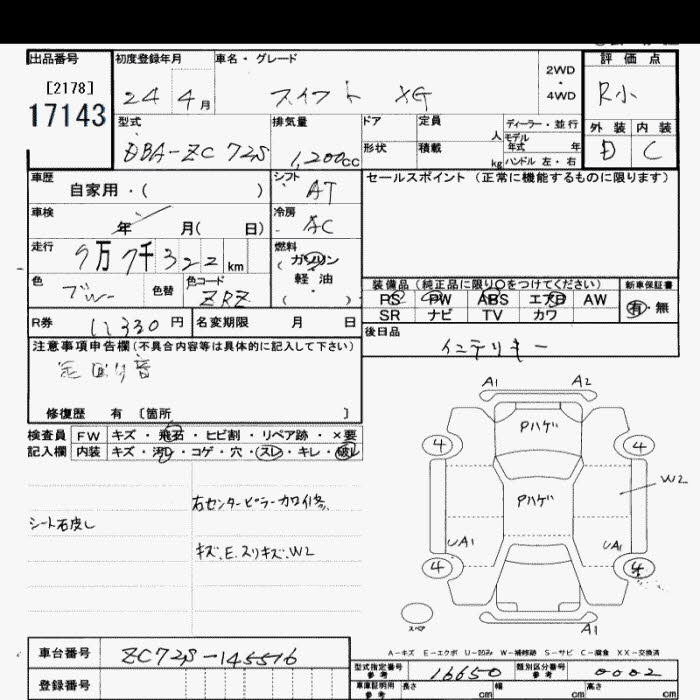 出品番号
[2178]
17143
初度登録年月
24 4月
車名・グレード
スイフト XG
2WD
・
4WD
評価点
R小
外装 内装
D C
型式
DBA-ZC72S
排気量
1,200cc
ドア
形状
定員
人
積載
kg
ディーラー・並行
モデル年式 年
ハンドル 左・右
車歴
自家用・( )
シフト
AT
セールスポイント (正常に機能するものに限ります)
車検
年 月( 日)
冷房
AC
走行
9万7千322km
燃料
(ガソリン・軽油)
色
ブルー
色替
色コード
ZRZ
R券
11330円
名変期限 月 日
装備品(純正品に限り○をつけてください)
PS PW ABS エアB AW
SR ナビ TV カワ
新車保証書
有・無
後日品
インテリキー
注意事項申告欄(不具合内容等は具体的に記入して下さい)
足回り音
修復歴 有 〔箇所 〕
検査員記入欄
FW キズ・飛石・ヒビ割・リペア跡・×要
内装 キズ・汚れ・コゲ・穴・スレ・キレ・破れ
シート右皮し
右センターピラーカワイ修.
キズ.E.スリキズ.W2
A1 A2
Pハゲ
4 4
W2
Pハゲ
UA1 UA1
4 4
スペア
A1
A-キズ E-エクボ U-凹み W-補修跡 S-サビ C-腐食 XX-交換済
車台番号
ZC72S-145516
登録番号
型式指定番号
参考
16650
類別区分番号
参考
0002
車庫証明用
参考
長さ cm
幅 cm
高さ cm